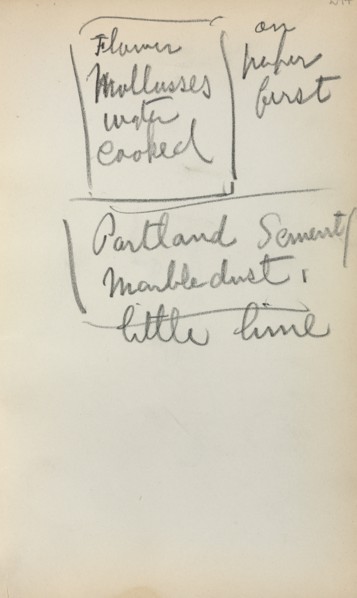 Flower
Mollusses
water
cooked
on
paper
first
Portland Sement
Marbledust,
little lime